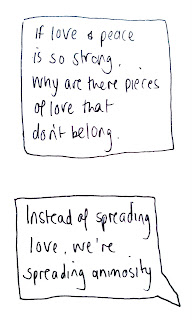 If love & peace
is so strong.
Why are there pieces
of love that
don't belong.
Instead of spreading
love. we're
spreading animosity